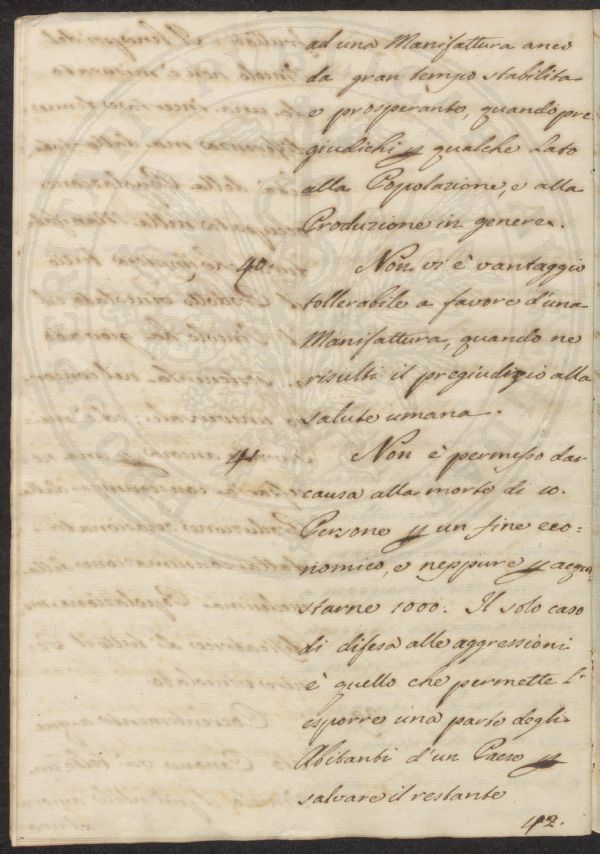 ad una Manifattura anco
da gran tempo stabilita
e prosperante, quando pre
giudichi p qualche Lato
alla Popolazione, e alla
Produzione in genere.
40. Non vi è vantaggio
tollerabile a favore d'una
Manifattura, quando ne
risulti il pregiudizio alla
salute umana.
41. Non è permesso dar
causa alla morte di 10.
Persone p un fine eco=
nomico, e neppure p acqui
starne 1000: Il solo caso
di difesa alle aggressioni
è quello che permette l'
esporre una parte degli
Abitanti d'un Paese p
salvare il restante
42.